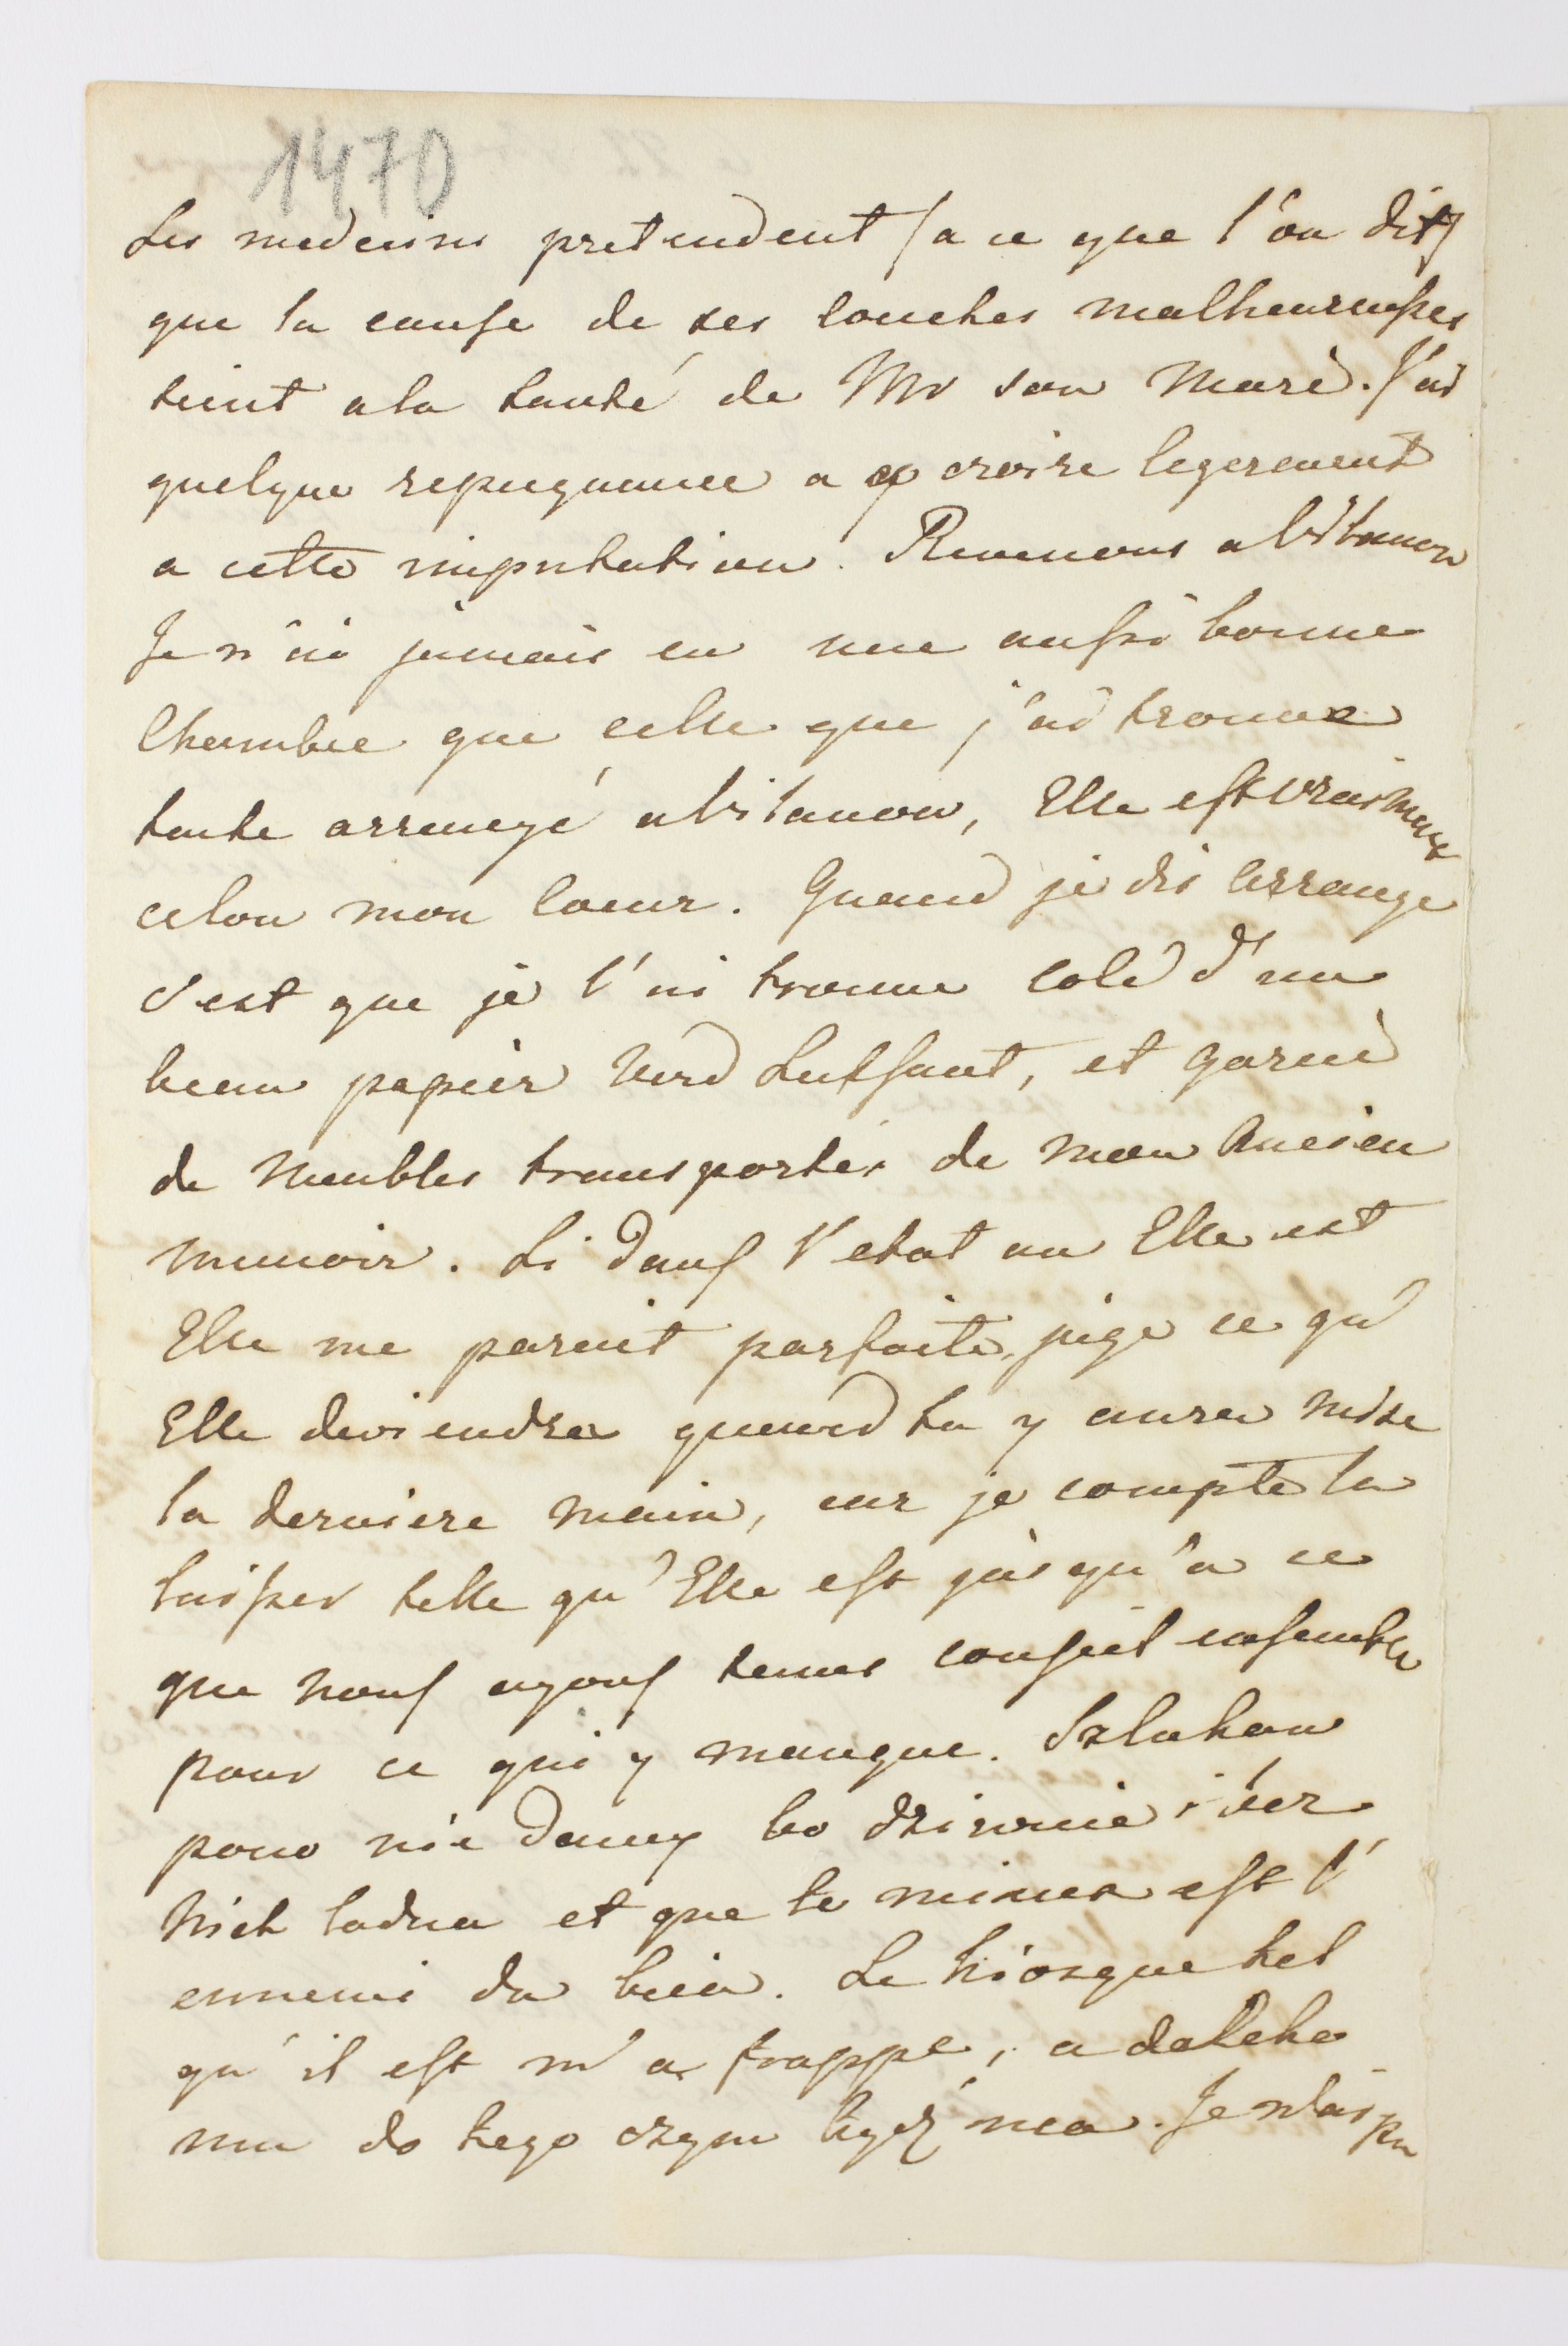 1470
Les medecins pretendent (a ce que l'on dit)
que la cause de ses couches malheureuses
tient a la santé de Mr son Mari. J'ai
quelque repugnance a croire legerement
a cette imputation. Revenons a Wilanow
Je n'ai jamais eu une aussi bonne
Chambre que celle que j'ai trouve
toute arrengé a Wilanow, Elle est vraiment
celon mon coeur. Quand je dis arrange
c'est que je l'ai trouve colé d'un
beau papier verd Lutsant, et garni
de Meubles transportés de mon Ancien
Manoir. Si dans l'etat ou Elle est
Elle me parait parfaite, juge ce qu'
Elle deviendra quand tu y auras mise
la derniere main, car je compte la
laisser telle qu'Elle est jusqu'a ce
que nous ayons tenus conseil ensemble
pour ce qui y manque. Szlukow
pono nie damy bo dziwnie i bez
Nich ladna et que le mieux est l'
ennemi du bien. Le Kiosque tel
qu'il est m'a frappe, a daleko
mu do tego czym bydź ma. Je n'ai pu